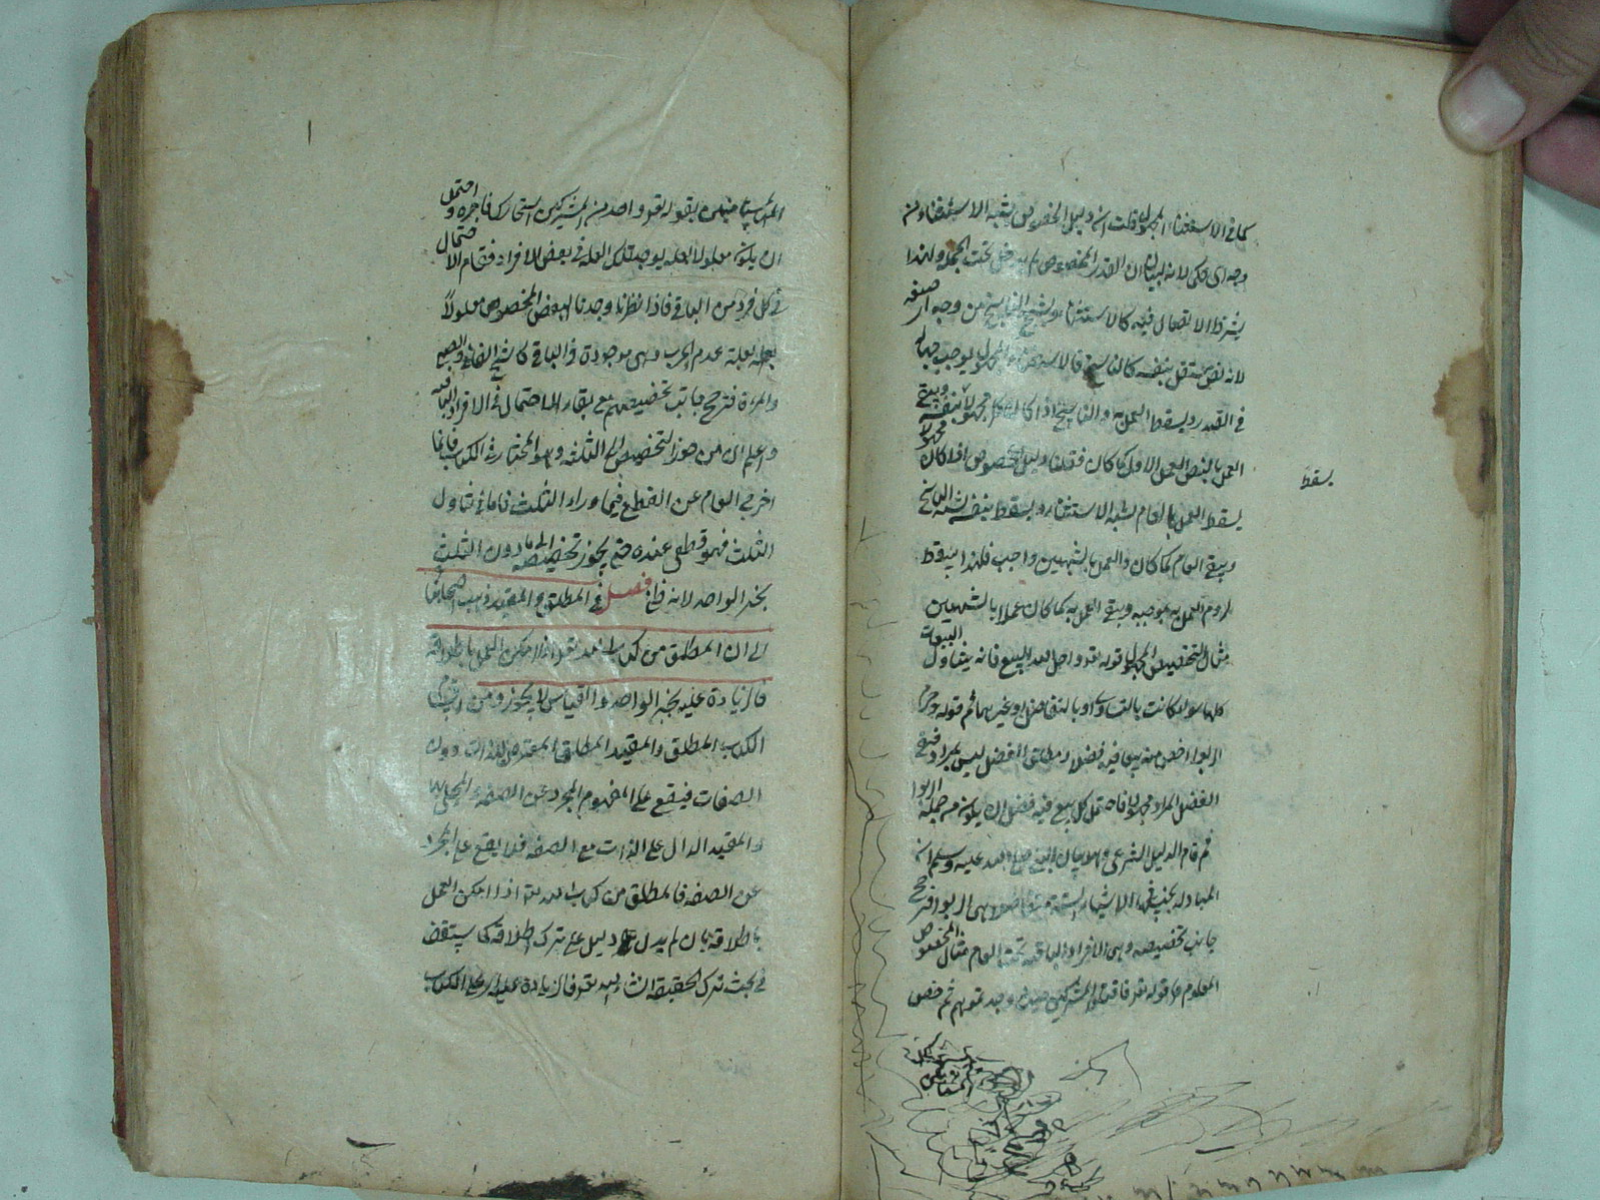 كما في الاستثناء المجهول قلت ان دليل الخصوص يشبه الاستثناء من
وجه اى حكى لانه لبيان ان القدر المخصوص لم يدخل تحت الجملة ولهذا
يشترط الاتصال فيه كالاستثناء ويشبه الناسخ من وجه اى صيغة
لانه نص مستقل بنفسه كالناسخ فالاستثناء المجهول يوجب جهالة
في القدر ويسقط العمل به والناسخ اذا كان مجهولا يسقط بنفسه ويبقى
العمل بالنص العمل الاول كما كان فقلنا دليل الخصوص اذا كان مجهولا
يسقط
يسقط العمل بالعام لشبه الاستثناء ويسقط بنفسه لشبه الناسخ
ويبقى العام كما كان والعمل بالشبهين واجب فلهذا يسقط
لزوم العمل به بموجبه ويبقى العمل به كما كان عملا بالشبهين
مثال التخصيص المجهول قوله تعـ واحل الله البيع فانه يتناول البيعات
كلها سواء كانت بالتساوى او بالتفاضل او غيرهما ثم قوله وحرم
الربوا خص منه بيعا فيه فضل ومطلق الفضل ليس بمراد فبقى
الفضل المراد مجهولا فاحتمل كل بيع فيه فضل ان يكون من جملة الربوا
ثم قام الدليل الشرعى وهو بيان النبى صلى الله عليه وسلم ان
المبادلة بجنسه في الاشياء الستة متفاضلا هى الربوا فترجح
جانب تخصيصه وبقى الافراد الباقية تحت العام مثال المخصوص
المعلوم قوله تعـ فاقتلوا المشركين حيث وجدتموهم ثم خص
المستامنين بقوله تعـ وان احد من المشركين استجارك فاجره واحتمل
ان يكون معلولا بعلة يوجد تلك العلة في بعض الافراد فقام الاحتمال
في كل فرد من الباقى فاذا نظرنا وجدنا البعض المخصوص معلولا
بعلة عدم الحرب وهى موجودة في الباقى كالشيخ الفانى والصبى
والمراة فترجح جانب تخصيصهم مع بقاء الاحتمال في الافراد الباقية
واعلم ان من جوز التخصيص الى الثلثة وهو المختار في الكتاب فانما
اخرج العام عن القطع فيما وراء الثلث فاما في تناول
الثلث فهو قطعى عنده حتى لا يجوز تخصيصه الى ما دون الثلث
بخبر الواحد لانه فصل في المطلق والمقيد ذهب اصحابنا
الى ان المطلق من كتاب الله تعـ اذا امكن العمل باطلاقه
فالزيادة عليه بخبر الواحد والقياس لا يجوز ومن
الكتاب المطلق والمقيد المطلق المعترض للذات دون
الصفات فيقع على المفهوم المجرد عن الصفة والمحلى بها
والمقيد الدال على الذات مع الصفة فلا يقع على المجرد
عن الصفة فالمطلق من كتاب الله تعـ اذا امكن العمل
باطلاقه بان لم يدل دليل على ترك اطلاقه كما ستقف
في بحث ترك الحقيقة انشاء الله تعـ فالزيادة عليه اى على الكتاب